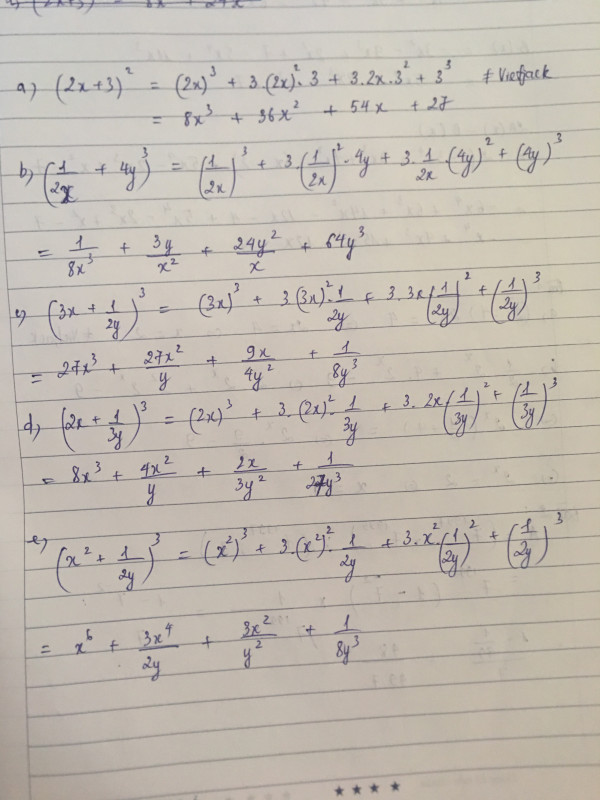 a) (2x+3)² = (2x)³ + 3.(2x)².3 + 3.2x.3² + 3³ ≠ Vietjack
= 8x³ + 36x² + 54x + 27
b) (1/2x + 4y)³ = (1/2x)³ + 3.(1/2x)².4y + 3.1/2x.(4y)² + (4y)³
= 1/8x³ + 3y/x² + 24y²/x + 64y³
c) (3x + 1/2y)³ = (3x)³ + 3(3x)².1/2y + 3.3x(1/2y)² + (1/2y)³
= 27x³ + 27x²/y + 9x/4y² + 1/8y³
d) (2x + 1/3y)³ = (2x)³ + 3.(2x)².1/3y + 3.2x(1/3y)² + (1/3y)³
= 8x³ + 4x²/y + 2x/3y² + 1/27y³
e) (x² + 1/2y)³ = (x²)³ + 3.(x²)².1/2y + 3.x².(1/2y)² + (1/2y)³
= x⁶ + 3x⁴/2y + 3x²/y² + 1/8y³